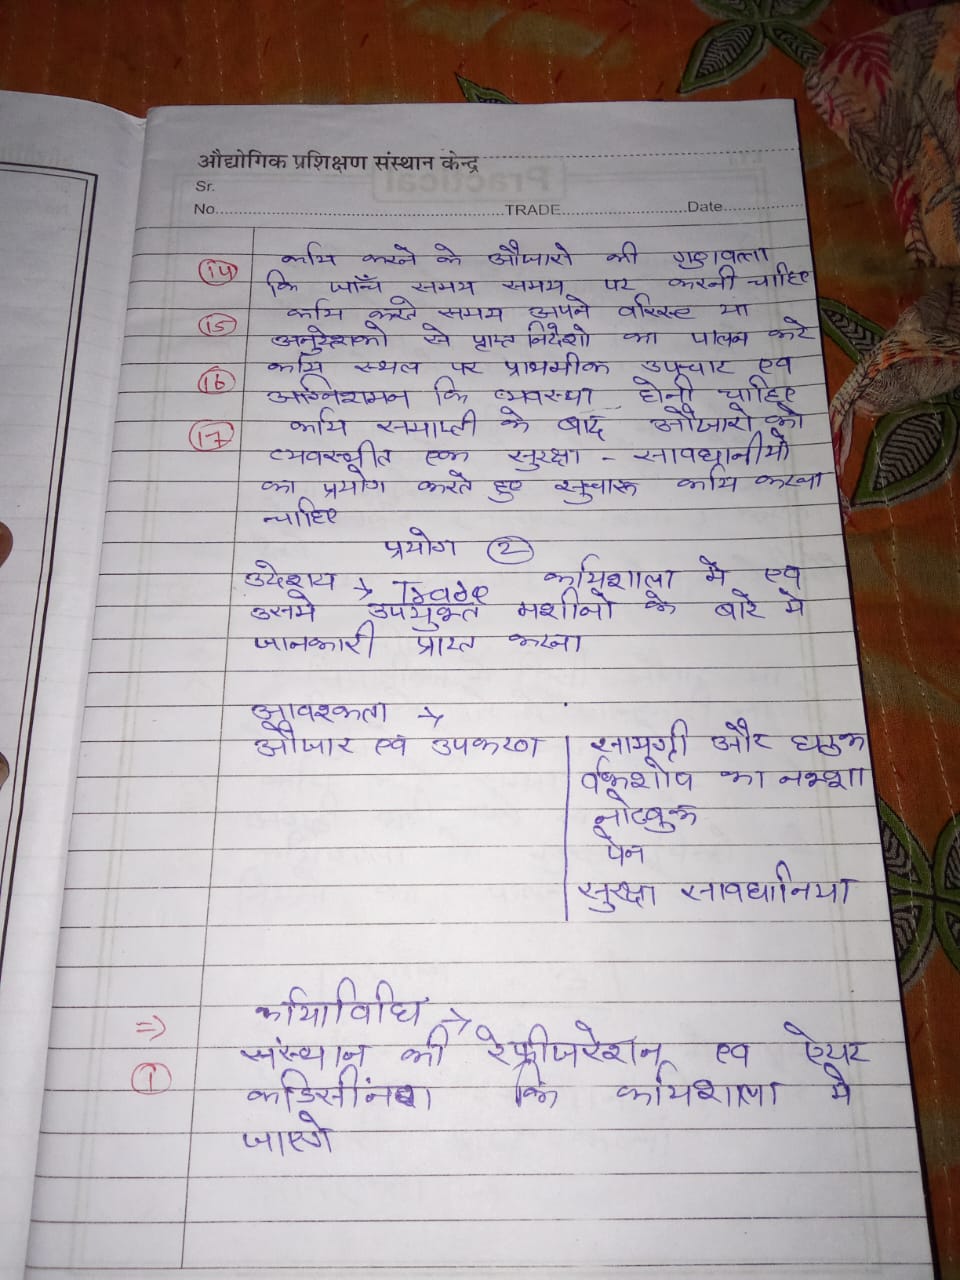 औद्योगिक प्रशिक्षण संस्थान केन्द्र
Sr.
No. TRADE Date
14 कार्य करने के औजारो की गुणवत्ता
कि जाँच समय समय पर करनी चाहिए
15 कार्य करते समय अपने वरिस्ट या
अनुदेशको से प्राप्त निर्देशो का पालन करे
16 कार्य स्थल पर प्राथमीक उपचार एव
अग्निशमन कि व्यवस्था होनी चाहिए
17 कार्य समाप्ती के बाद औजारो को
व्यवस्थीत एक सुरक्षा - सावधानीयो
का प्रयोग करते हुए सुचारू कार्य करना
चाहिए
प्रयोग 2
उदेशय → Trade कार्यशाला मे एव
उसमे उपयुक्त मशीनो के बारे मे
जानकारी प्राप्त करना
आवश्कता →
औजार एवं उपकरण | सामग्री और घटक
र्वकशोप का नक्शा
नोटबुक
पेन
सुरक्षा सावधानिया
⇒ कार्यविधि →
1 संस्थान की रेफ्रीजरेशन एव ऐयर
कि कार्यशाला मे
जाएगे